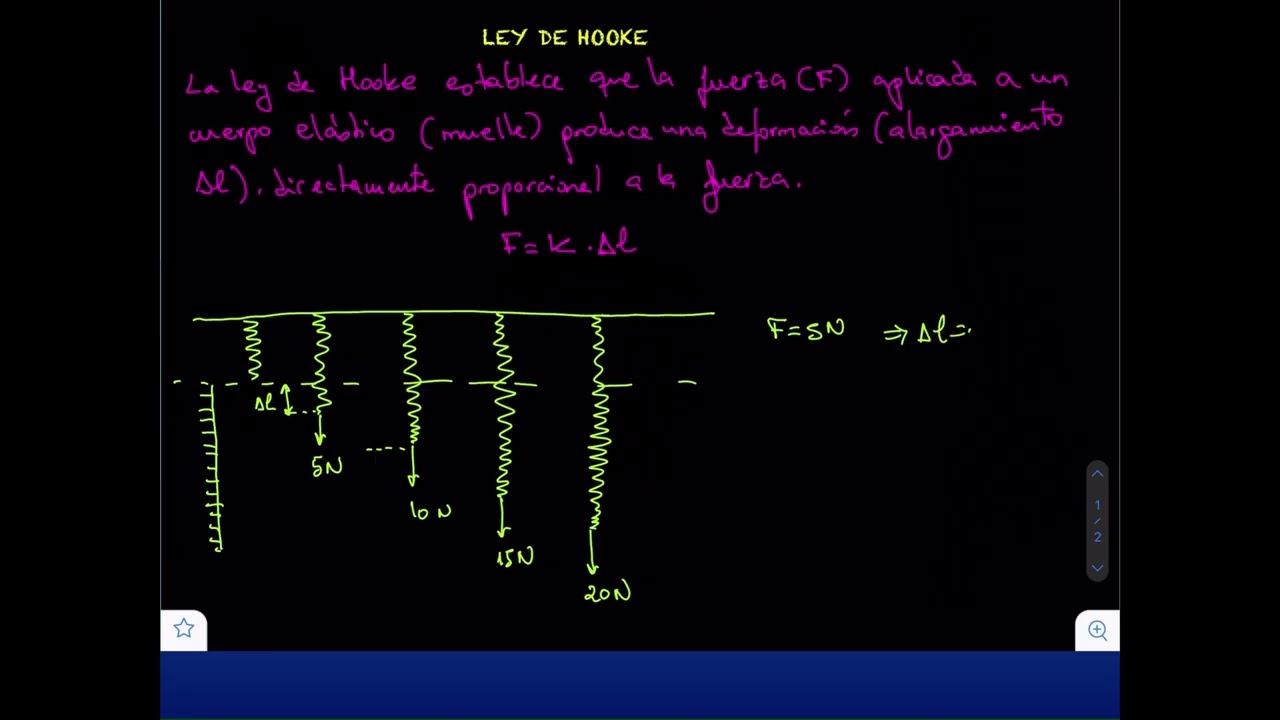 LEY DE HOOKE
La ley de Hooke establece que la fuerza (F) aplicada a un
cuerpo elástico (muelle) produce una deformación (alargamiento
Δl), directamente proporcional a la fuerza.
F = K · Δl
F = 5N ⇒ Δl =
Δl
5N
10 N
15N
20N
1
/
2